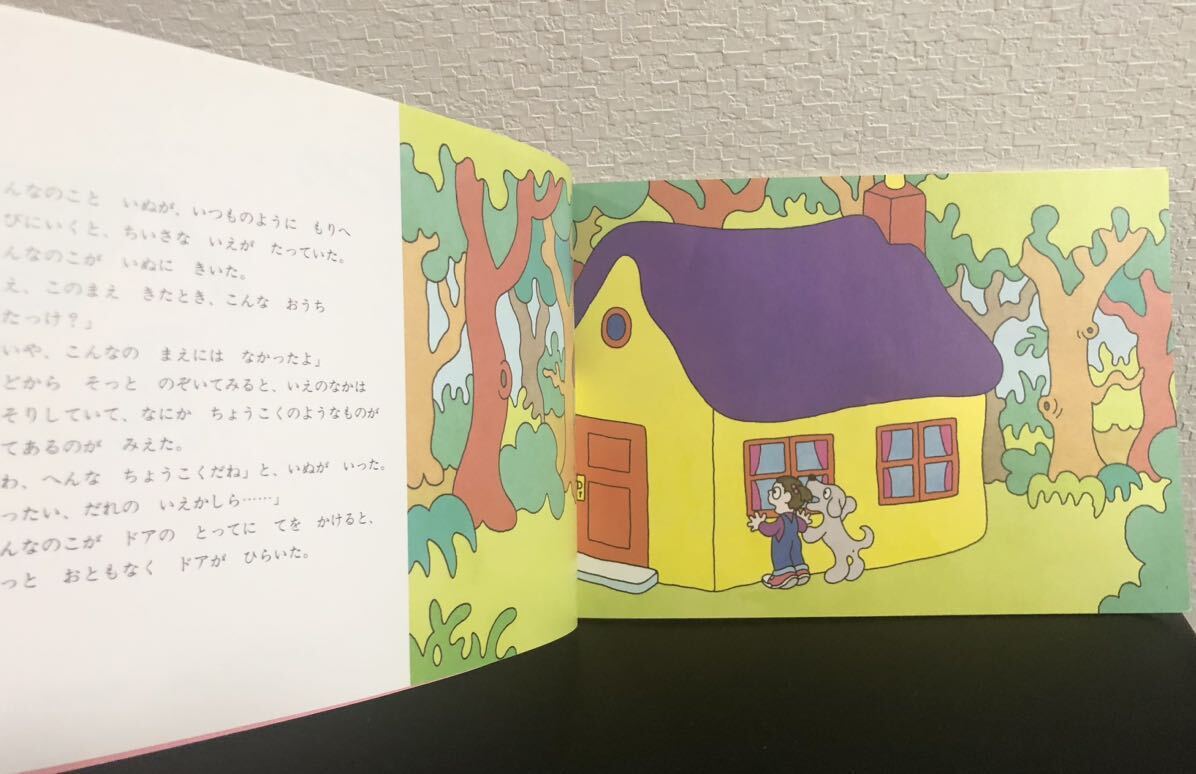 んなのこと　いぬが、いつものように　もりへ
びにいくと、ちいさな　いえが　たっていた。
んなのこが　いぬに　きいた。
え、このまえ　きたとき、こんな　おうち
たっけ？」
いや、こんなの　まえには　なかったよ」
どから　そっと　のぞいてみると、いえのなかは
そりしていて、なにか　ちょうこくのようなものが
てあるのが　みえた。
わ、へんな　ちょうこくだね」と、いぬが　いった。
ったい、だれの　いえかしら……」
んなのこが　ドアの　とってに　てを　かけると、
っと　おともなく　ドアが　ひらいた。